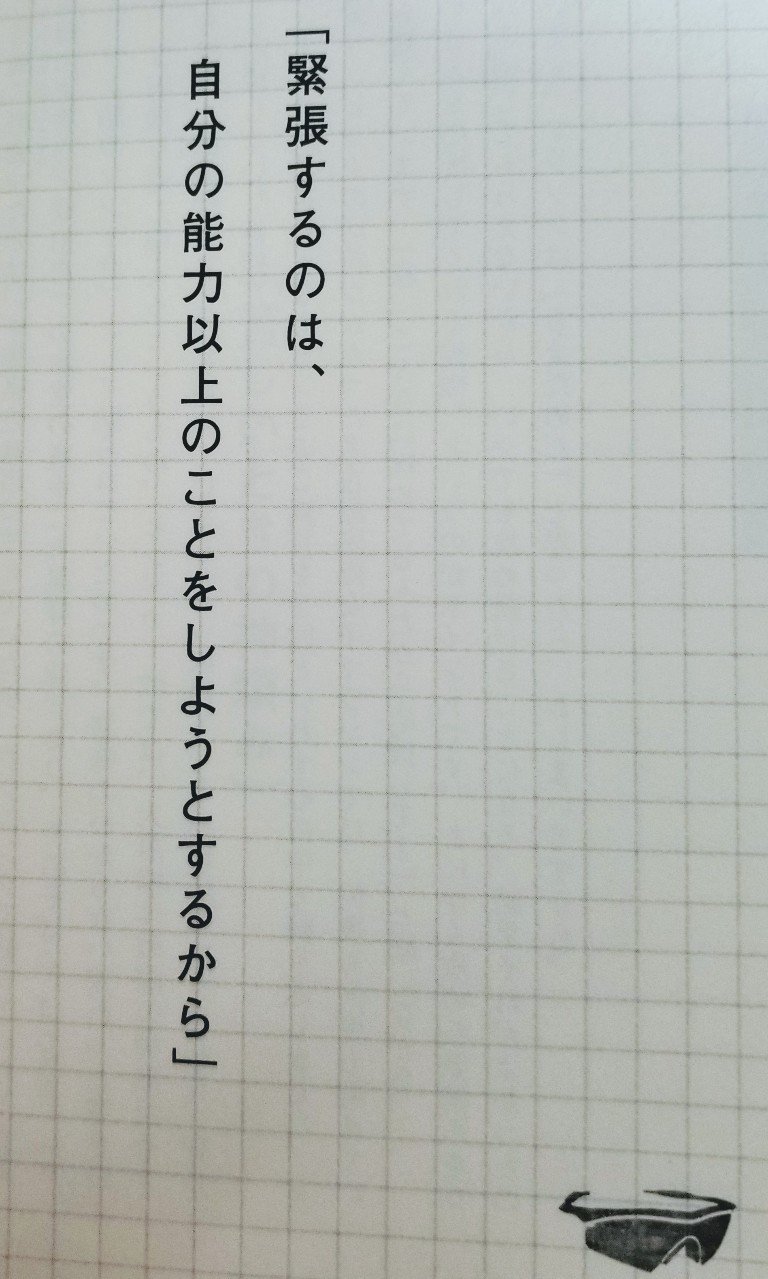 「緊張するのは、
自分の能力以上のことをしようとするから」